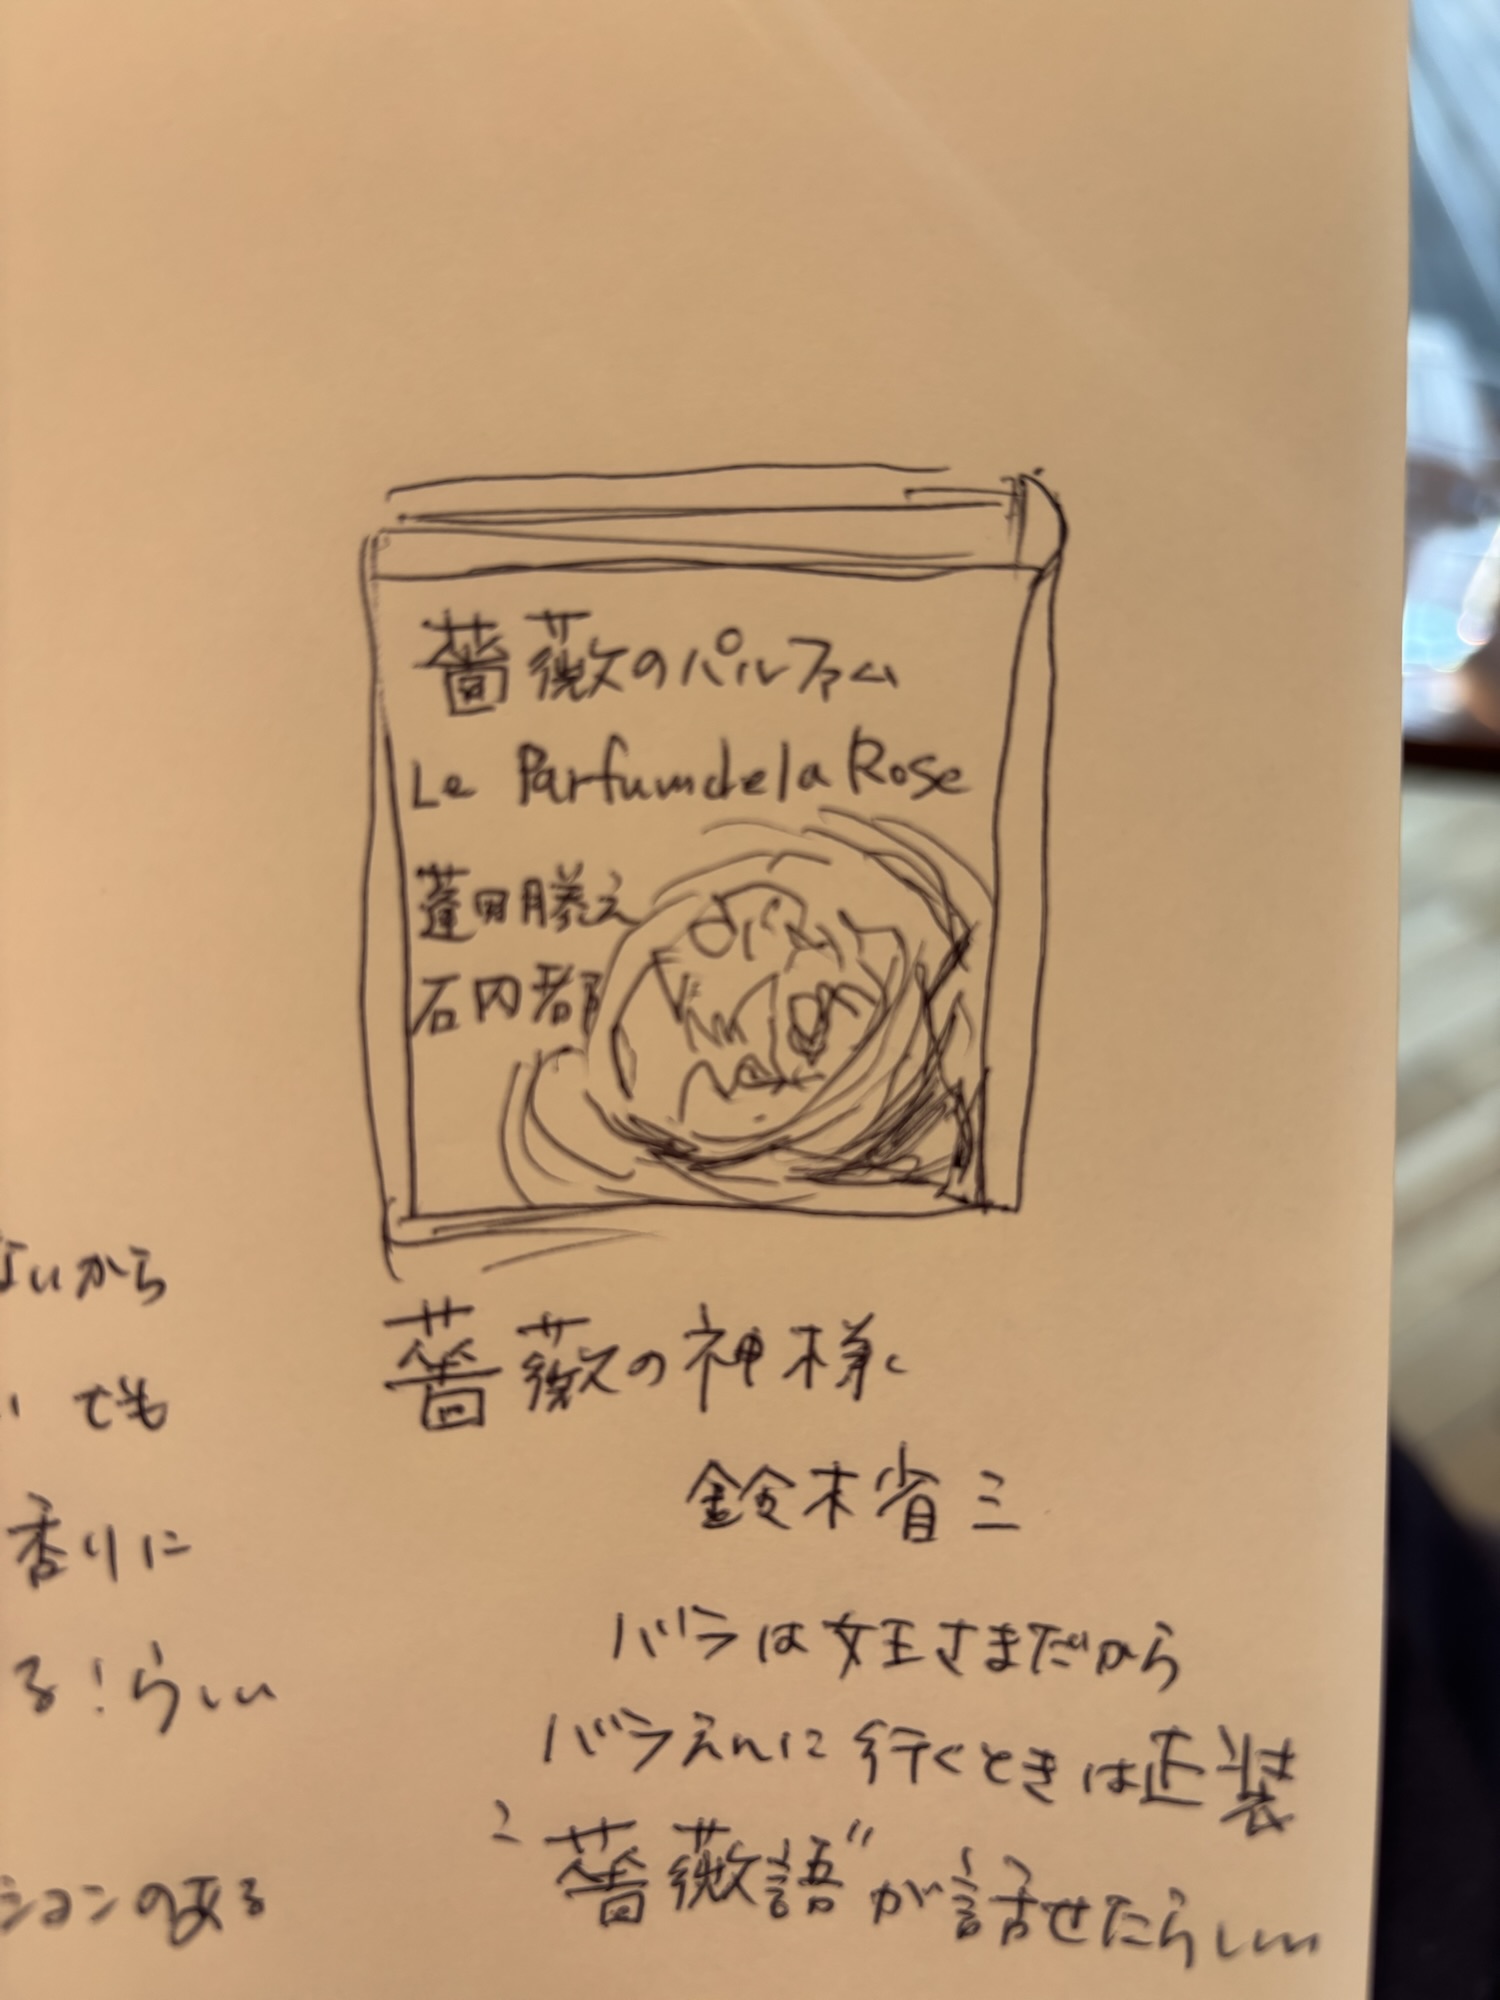 薔薇のパルファム
Le Parfum de la Rose
蓬田勝え
石内都
薔薇の神様
鈴木省三
バラは女王さまだから
バラえんに行くときは正装
"薔薇語"が話せたらしい
ないから
でも
香りに
る!らしい
ションのある